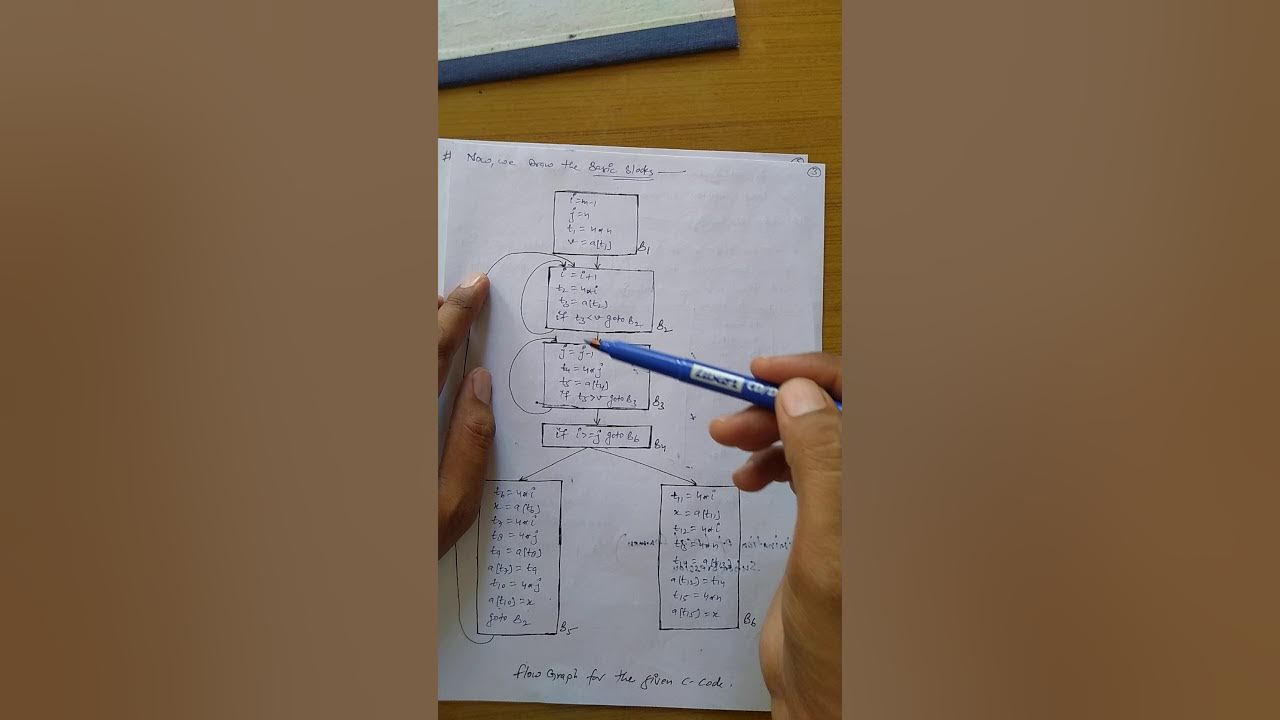 # Now, we Draw the Basic Blocks —
3
i=m-1
j=n
t1 = 4*n
v = a[t1]
B1
i = i+1
t2 = 4*i
t3 = a[t2]
if t3<v goto B2
B2
j = j-1
t4 = 4*j
t5 = a[t4]
if t5>v goto B3
B3
if i>=j goto B6
B4
t6 = 4*i
x = a[t6]
t7 = 4*i
t8 = 4*j
t9 = a[t8]
a[t7] = t9
t10 = 4*j
a[t10] = x
goto B2
B5
t11 = 4*i
x = a[t11]
t12 = 4*i
t13 = 4*n
t14 = a[t13]
a[t12] = t14
t15 = 4*n
a[t15] = x
B6
flow Graph for the given C-code.
LUXOR